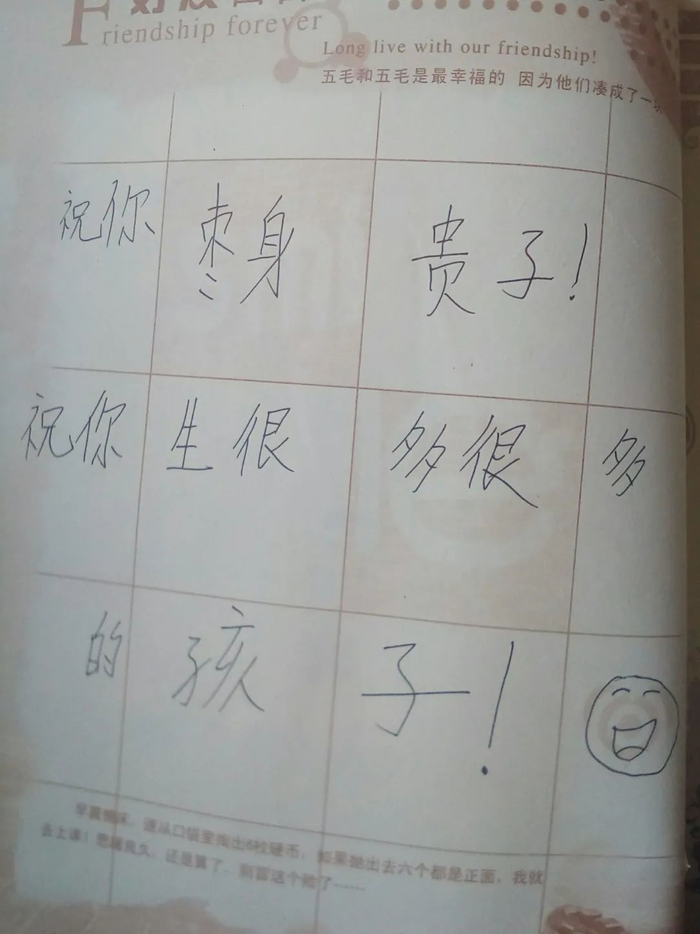 Friendship forever
Long live with our friendship!
五毛和五毛是最幸福的 因为他们凑成了一
祝你枣身贵子!
祝你生很多很多
的孩子!
早晨醒来,遂从口袋里掏出6枚硬币,如果抛出去六个都是正面,我就
去上课!思索良久,还是算了,别冒这个险了……